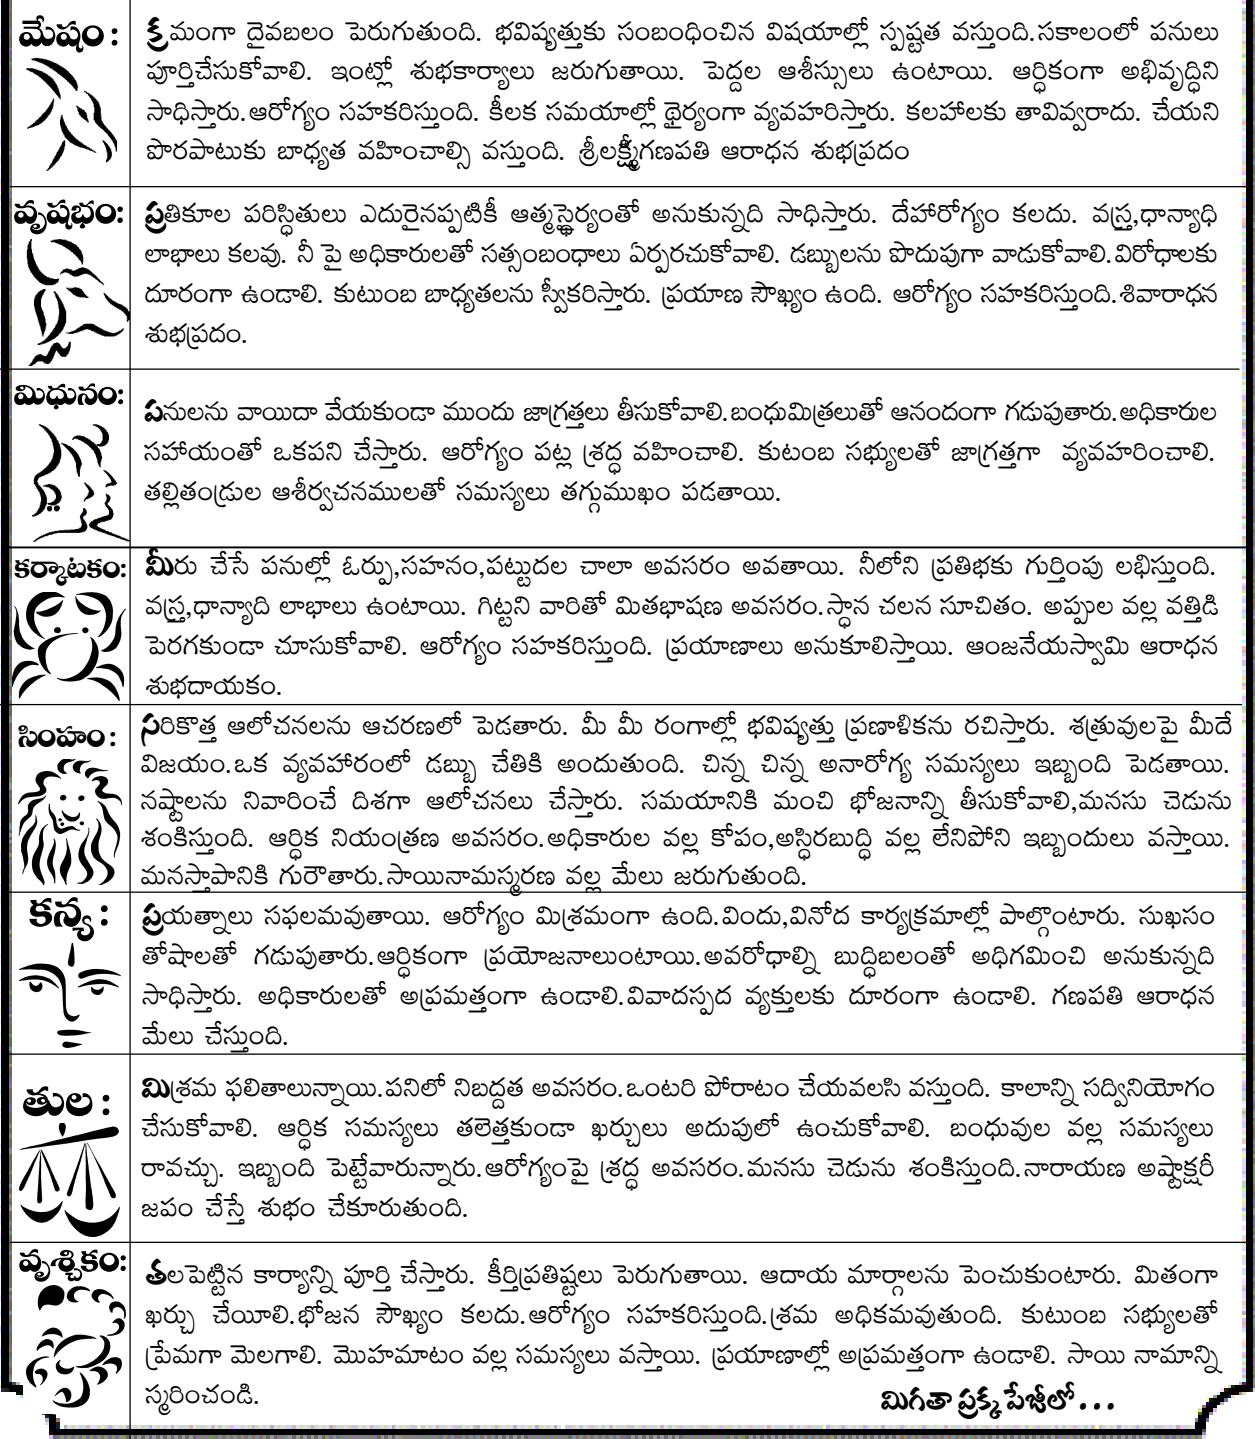 మేషం:
క్రమంగా దైవబలం పెరుగుతుంది. భవిష్యత్తుకు సంబంధించిన విషయాల్లో స్పష్టత వస్తుంది.సకాలంలో పనులు
పూర్తిచేసుకోవాలి. ఇంట్లో శుభకార్యాలు జరుగుతాయి. పెద్దల ఆశీస్సులు ఉంటాయి. ఆర్ధికంగా అభివృద్ధిని
సాధిస్తారు.ఆరోగ్యం సహకరిస్తుంది. కీలక సమయాల్లో థైర్యంగా వ్యవహరిస్తారు. కలహాలకు తావివ్వరాదు. చేయని
పొరపాటుకు బాధ్యత వహించాల్సి వస్తుంది. శ్రీలక్ష్మీగణపతి ఆరాధన శుభప్రదం
వృషభం:
ప్రతికూల పరిస్ధితులు ఎదురైనప్పటికీ ఆత్మస్థైర్యంతో అనుకున్నది సాధిస్తారు. దేహారోగ్యం కలదు. వస్త్ర,ధాన్యాధి
లాభాలు కలవు. నీ పై అధికారులతో సత్సంబంధాలు ఏర్పరచుకోవాలి. డబ్బులను పొదుపుగా వాడుకోవాలి.విరోధాలకు
దూరంగా ఉండాలి. కుటుంబ బాధ్యతలను స్వీకరిస్తారు. ప్రయాణ సౌఖ్యం ఉంది. ఆరోగ్యం సహకరిస్తుంది.శివారాధన
శుభప్రదం.
మిధునం:
పనులను వాయిదా వేయకుండా ముందు జాగ్రత్తలు తీసుకోవాలి.బంధుమిత్రలుతో ఆనందంగా గడుపుతారు.అధికారుల
సహాయంతో ఒకపని చేస్తారు. ఆరోగ్యం పట్ల శ్రద్ధ వహించాలి. కుటంబ సభ్యులతో జాగ్రత్తగా వ్యవహరించాలి.
తల్లితండ్రుల ఆశీర్వచనములతో సమస్యలు తగ్గుముఖం పడతాయి.
కర్కాటకం:
మీరు చేసే పనుల్లో ఓర్పు,సహనం,పట్టుదల చాలా అవసరం అవతాయి. నీలోని ప్రతిభకు గుర్తింపు లభిస్తుంది.
వస్త్ర,ధాన్యాది లాభాలు ఉంటాయి. గిట్టని వారితో మితభాషణ అవసరం.స్ధాన చలన సూచితం. అప్పుల వల్ల వత్తిడి
పెరగకుండా చూసుకోవాలి. ఆరోగ్యం సహకరిస్తుంది. ప్రయాణాలు అనుకూలిస్తాయి. ఆంజనేయస్వామి ఆరాధన
శుభదాయకం.
సింహం:
సరికొత్త ఆలోచనలను ఆచరణలో పెడతారు. మీ మీ రంగాల్లో భవిష్యత్తు ప్రణాళికను రచిస్తారు. శత్రువులపై మీదే
విజయం.ఒక వ్యవహారంలో డబ్బు చేతికి అందుతుంది. చిన్న చిన్న అనారోగ్య సమస్యలు ఇబ్బంది పెడతాయి.
నష్టాలను నివారించే దిశగా ఆలోచనలు చేస్తారు. సమయానికి మంచి భోజనాన్ని తీసుకోవాలి,మనసు చెడును
శంకిస్తుంది. ఆర్ధిక నియంత్రణ అవసరం.అధికారుల వల్ల కోపం,అస్ధిరబుద్ధి వల్ల లేనిపోని ఇబ్బందులు వస్తాయి.
మనస్తాపానికి గురౌతారు.సాయినామస్మరణ వల్ల మేలు జరుగుతుంది.
కన్య:
ప్రయత్నాలు సఫలమవుతాయి. ఆరోగ్యం మిశ్రమంగా ఉంది.విందు,వినోద కార్యక్రమాల్లో పాల్గొంటారు. సుఖసం
తోషాలతో గడుపుతారు.ఆర్ధికంగా ప్రయోజనాలుంటాయి.అవరోధాల్ని బుద్ధిబలంతో అధిగమించి అనుకున్నది
సాధిస్తారు. అధికారులతో అప్రమత్తంగా ఉండాలి.వివాదస్పద వ్యక్తులకు దూరంగా ఉండాలి. గణపతి ఆరాధన
మేలు చేస్తుంది.
తుల:
మిశ్రమ ఫలితాలున్నాయి.పనిలో నిబద్దత అవసరం.ఒంటరి పోరాటం చేయవలసి వస్తుంది. కాలాన్ని సద్వినియోగం
చేసుకోవాలి. ఆర్ధిక సమస్యలు తలెత్తకుండా ఖర్చులు అదుపులో ఉంచుకోవాలి. బంధువుల వల్ల సమస్యలు
రావచ్చు. ఇబ్బంది పెట్టేవారున్నారు.ఆరోగ్యంపై శ్రద్ధ అవసరం.మనసు చెడును శంకిస్తుంది.నారాయణ అష్టాక్షరీ
జపం చేస్తే శుభం చేకూరుతుంది.
వృశ్చికం:
తలపెట్టిన కార్యాన్ని పూర్తి చేస్తారు. కీర్తిప్రతిష్టలు పెరుగుతాయి. ఆదాయ మార్గాలను పెంచుకుంటారు. మితంగా
ఖర్చు చేయీలి.భోజన సౌఖ్యం కలదు.ఆరోగ్యం సహకరిస్తుంది.శ్రమ అధికమవుతుంది. కుటుంబ సభ్యులతో
ప్రేమగా మెలగాలి. మొహమాటం వల్ల సమస్యలు వస్తాయి. ప్రయాణాల్లో అప్రమత్తంగా ఉండాలి. సాయి నామాన్ని
స్మరించండి.
మిగతా ప్రక్క పేజీలో...